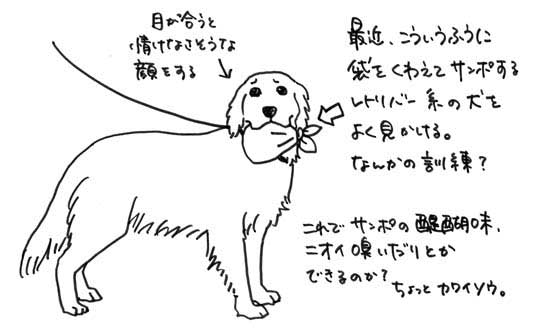 目が合うと
情けなさそうな
顔をする
最近、こういうふうに
袋をくわえてサンポする
レトリバー系の犬を
よく見かける。
なんかの訓練?
これでサンポの醍醐味、
ニオイ嗅いだりとか
できるのか?
ちょっとカワイソウ。